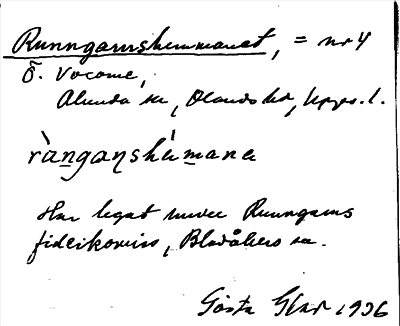 Runngarnshemmanet, = nr 4
Ö. Vocome,
Alunda sn, Olands hd, Upps. l.
ràngaɳshémana
Har legat under Runngarns
fideikomiss, Bladåkers sn.
Gösta 1936